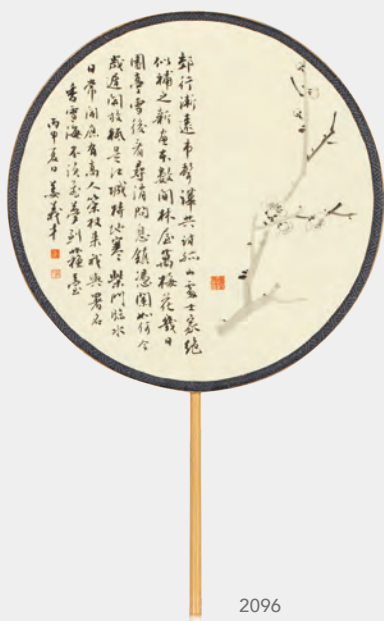 郊行漸遠市聲譁共訪孤山處士家絶
似補之新畫本數間林屋萬梅花幾日
園亭雪後看尋消問息鎮憑闌如何今
歲遲開放祇是江城特地寒柴門臨水
日常開應有高人策杖來我與署名
香雪海不須飛夢到蘓臺
丙申夏日姜義才
2096